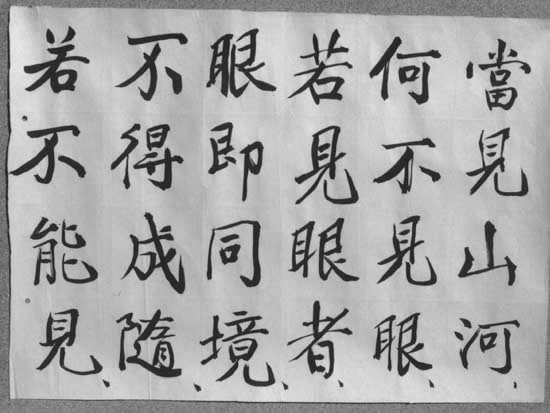 當見山河、
何不見眼、
若見眼者、
眼即同境、
不得成隨、
若不能見、